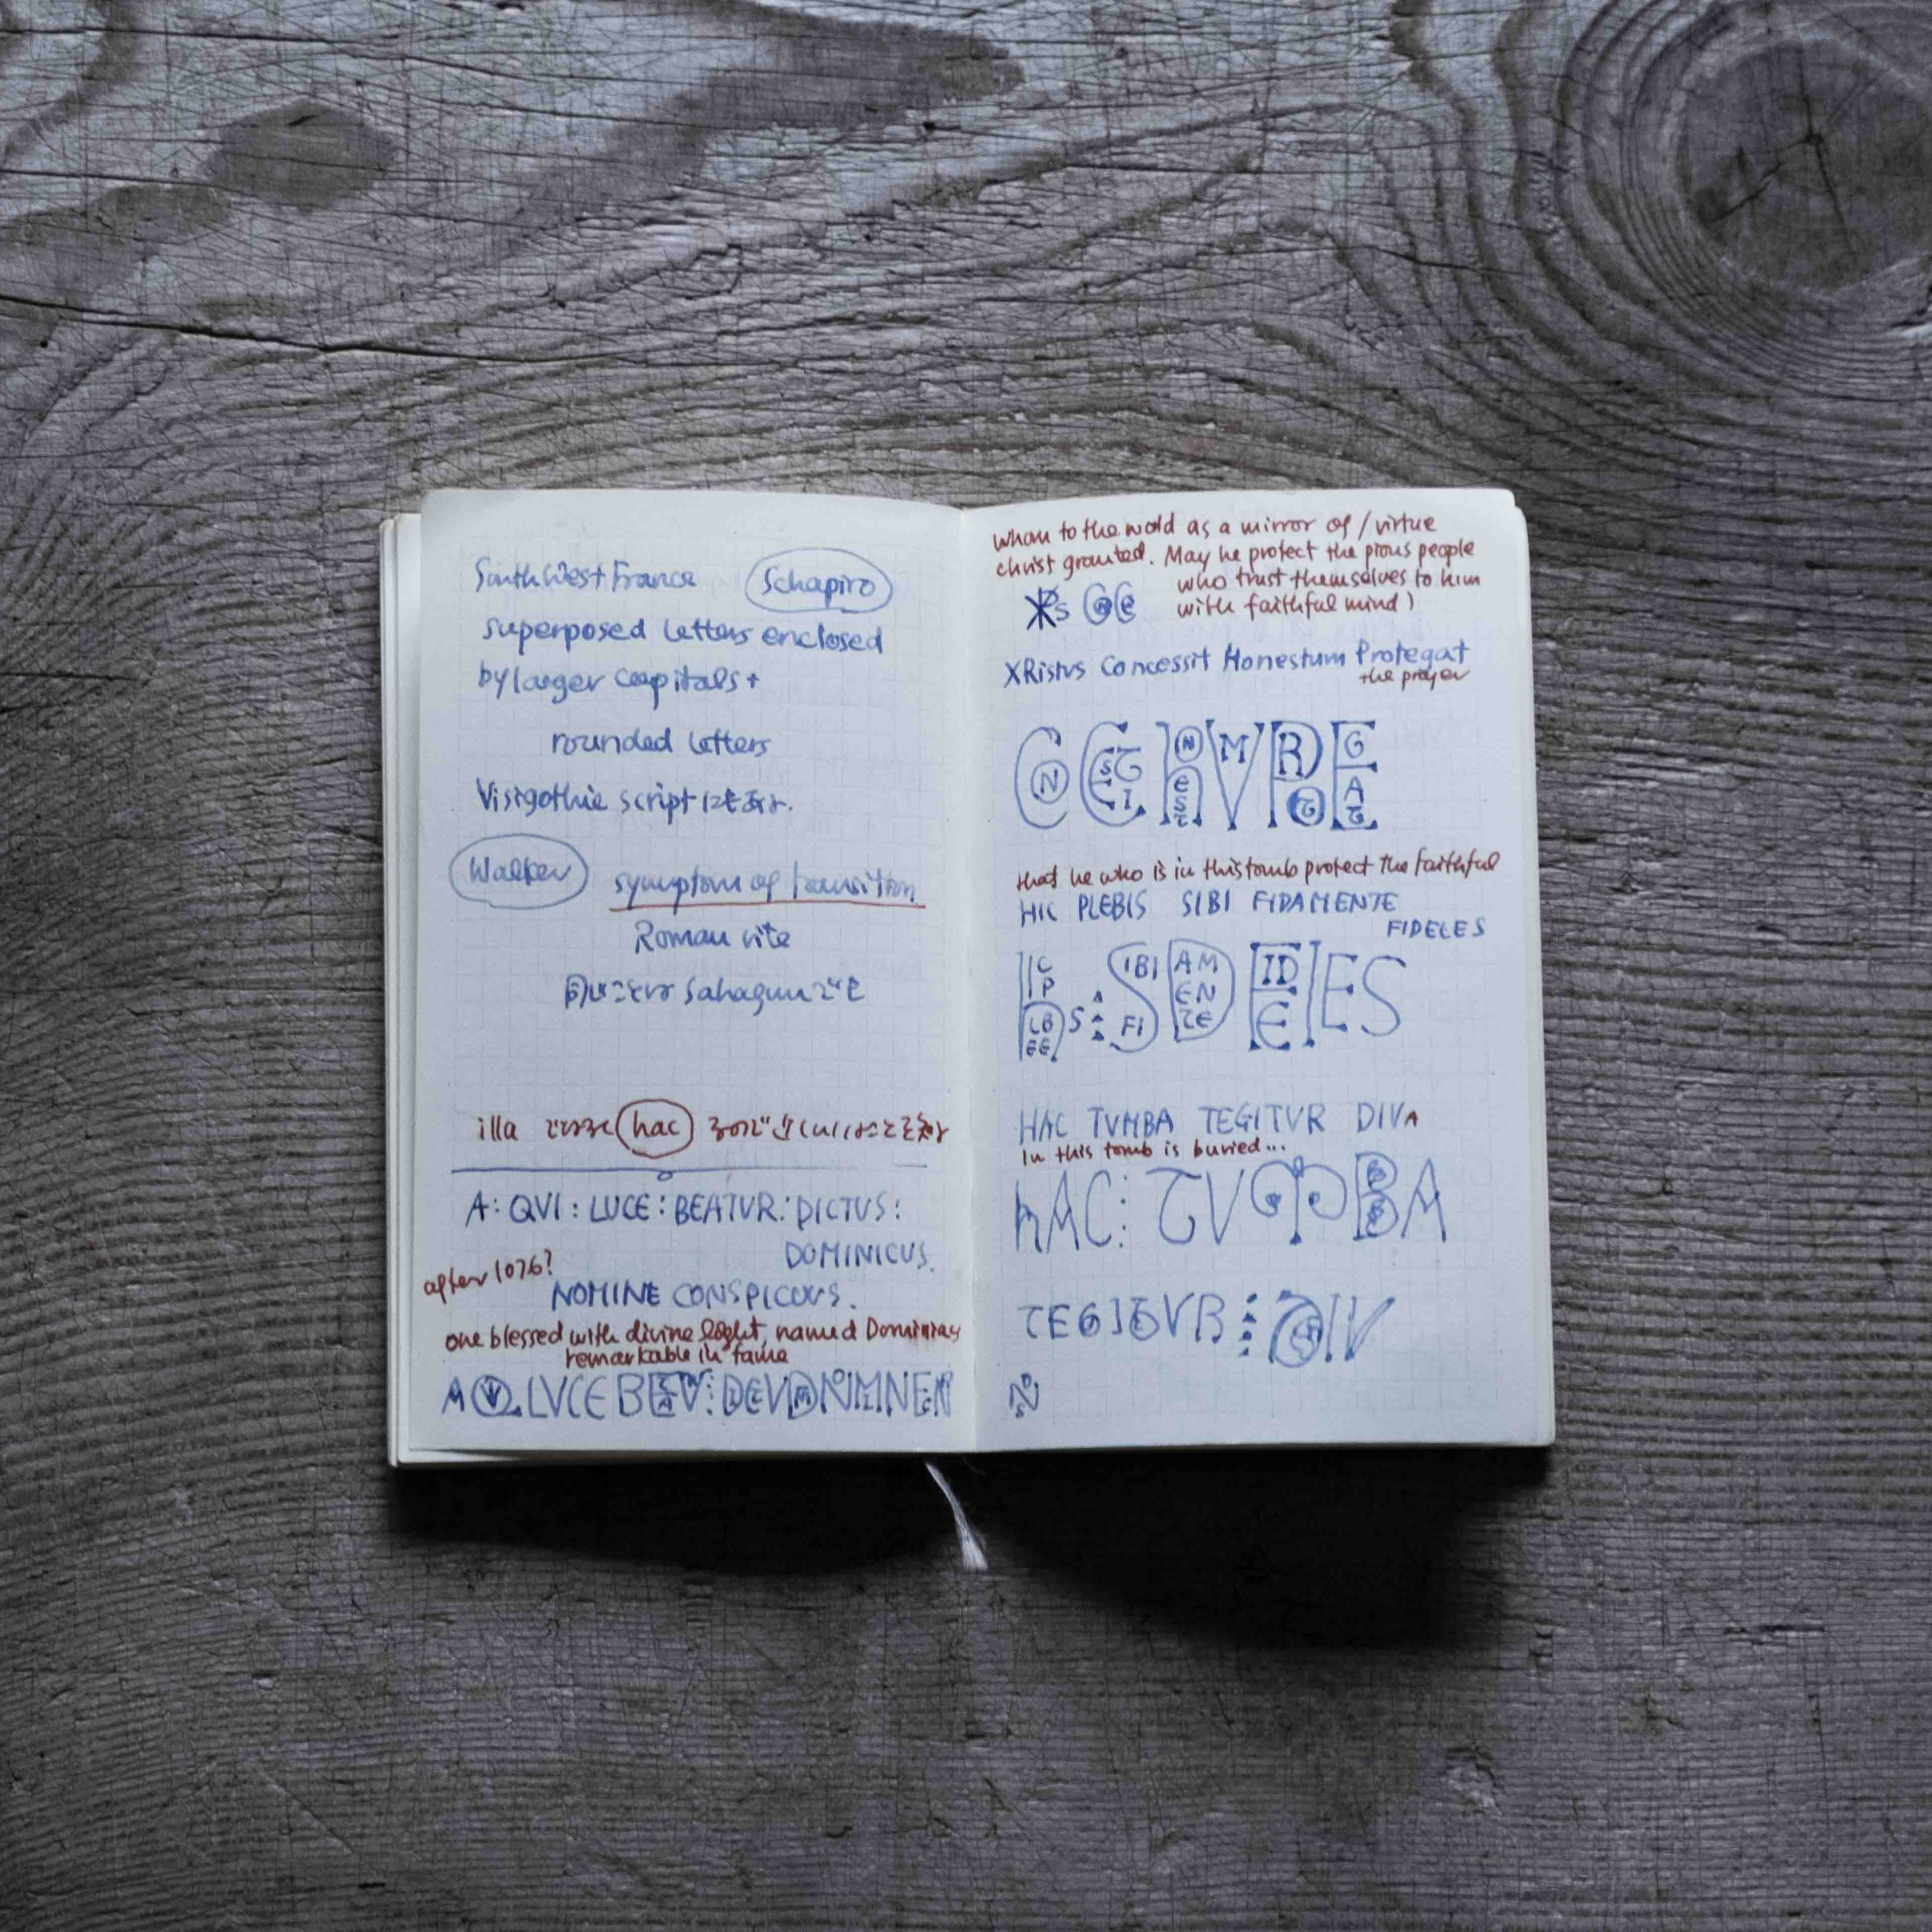 South West France Schapiro
superposed letters enclosed
by larger capitals +
rounded letters
Visigothic script にもあり.
Walker symptom of transition
Roman rite
同じことは Sahagunでも
illa ではなく hac
A: QVI: LUCE: BEATVR: DICTUS:
DOMINICUS.
after 1076?
NOMINE CONSPICUUS.
one blessed with divine light, named Dominicus
remarkable in fame
whom to the wold as a mirror of / virtue
christ granted. May he protect the pious people
who trust themselves to him
with faithful mind)
XRistvs Concessit Honestum Protegat
the prayer
that he who is in this tomb protect the faithful
HIC PLEBIS SIBI FIDAMENTE
FIDELES
IBI AM
EN
FI TE
ID
E
ES
HAC TVMBA TEGITVR DIVA
In this tomb is buried...
hAC: TV BA
TEGITVR